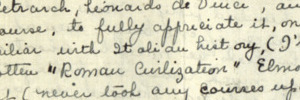 etrarch, Leonardo de Vinci, an
ourse, to fully appreciate it, on
iliar with Italian history, (I'
otten "Roman Civilization" Elmo
never took any courses up